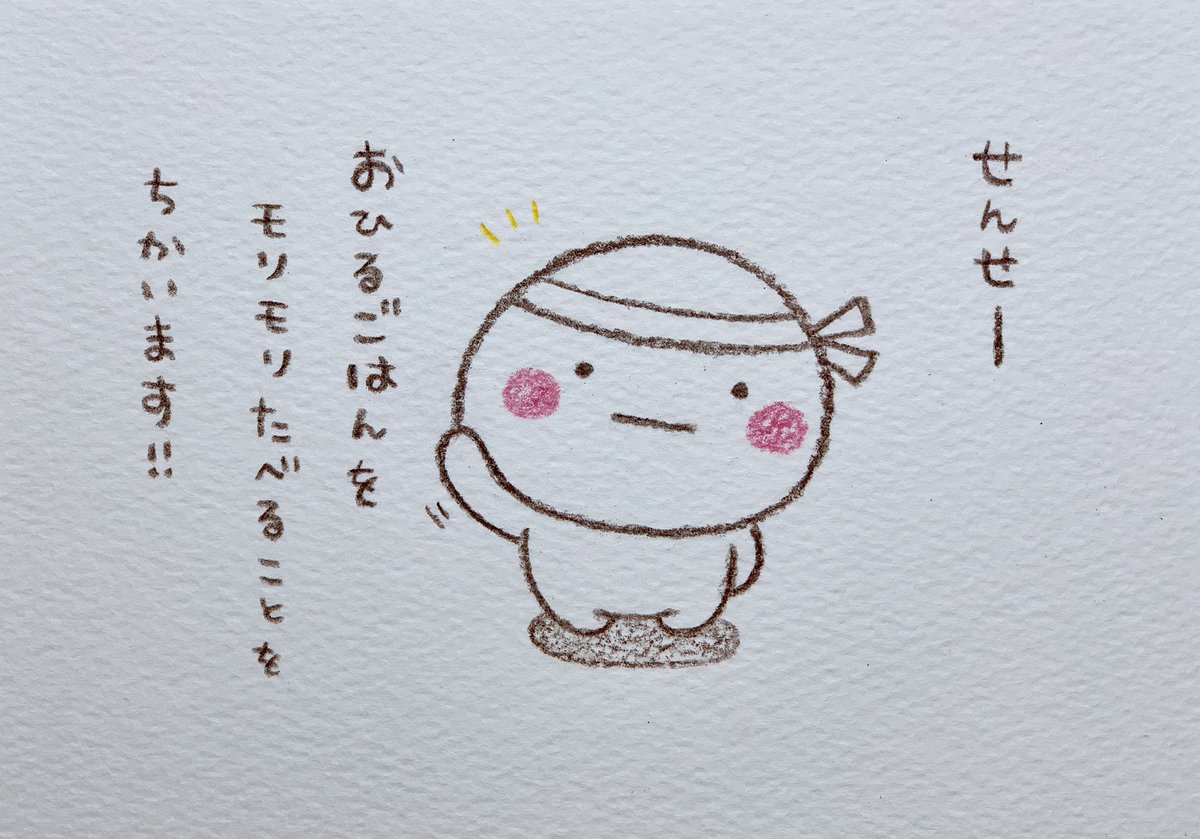 せんせー
おひるごはんを
モリモリたべることを
ちかいます!!